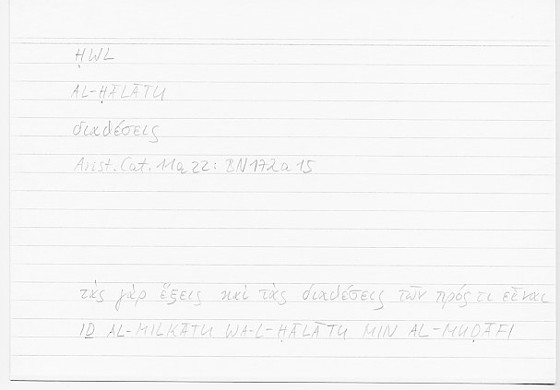 ḤWL
AL-ḤĀLĀTU
διαθέσεις
Arist. Cat. 11a22: BN172a15
τὰς γὰρ ἕξεις καὶ τὰς διαθέσεις τῶν πρός τι εἶναι
ID AL-MILKĀTU WA-L-ḤĀLĀTU MIN AL-MUḌĀFI